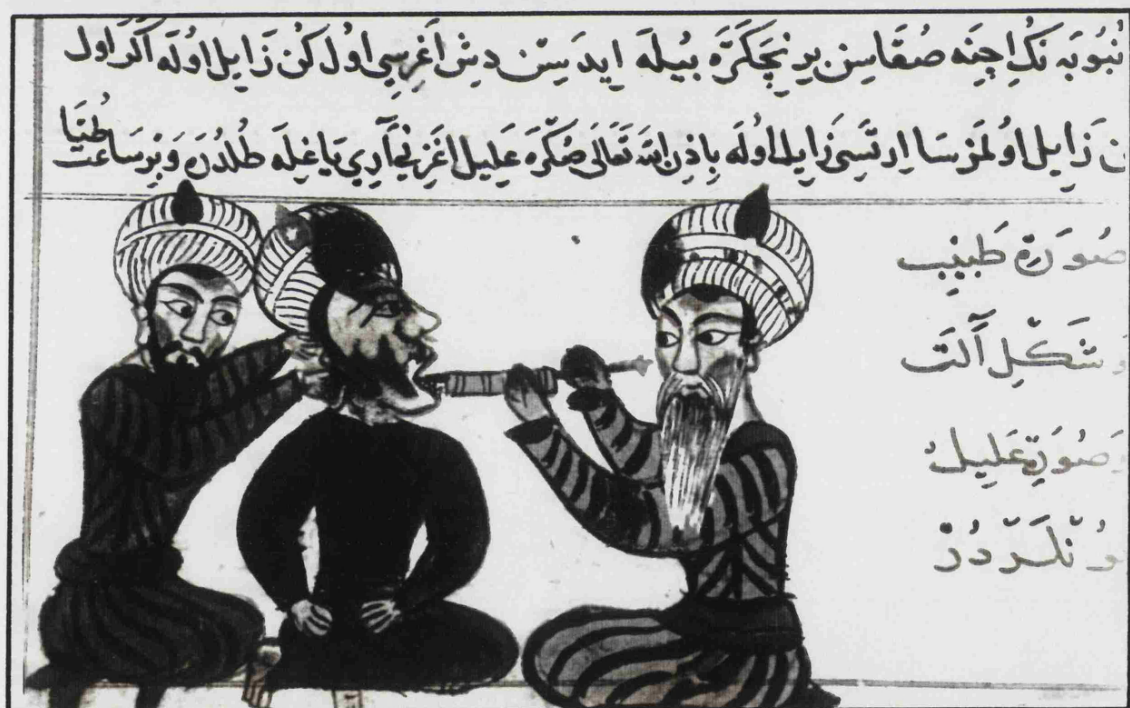 نبوبه نك اچنه صقاسن بر نچكره بيله ايدسن دش اغريسى اول كن زايل اوله اكر اول
ن زايل اولمزسا ارتسى زايل اوله باذن الله تعالى صكره عليل اغزنى آرى ياغله طلدرن و بر ساعت طتيا
صورة طبيب
و شكل آلت
و صورة عليل
و نلر در